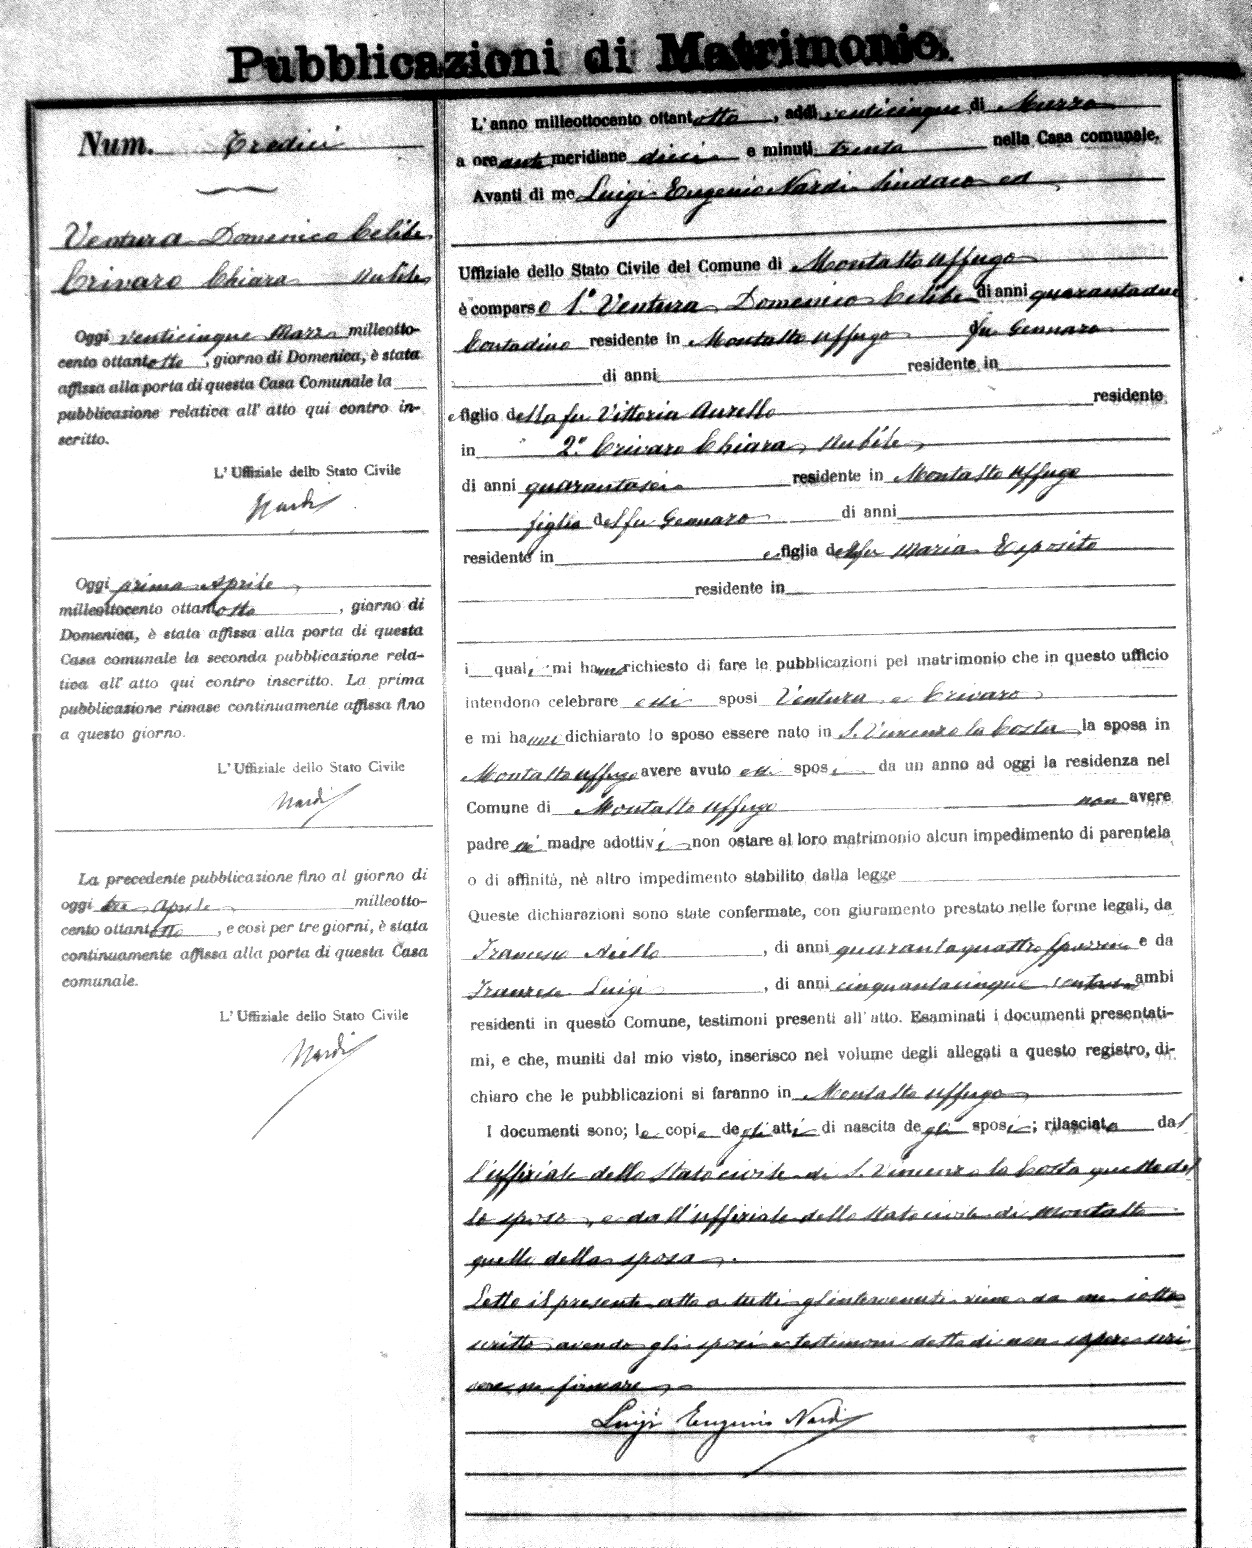 Pubblicazioni di Matrimonio.
Num. Tredici
Ventura Domenico Celibe
Crivaro Chiara nubile
Oggi venticinque Marzo milleotto-
cento ottantotto, giorno di Domenica, è stata
affissa alla porta di questa Casa Comunale la
pubblicazione relativa all' atto qui contro in-
scritto.
L' Uffiziale dello Stato Civile
Nardi
Oggi prima Aprile
milleottocento ottantotto, giorno di
Domenica, è stata affissa alla porta di questa
Casa comunale la seconda pubblicazione rela-
tiva all' atto qui contro inscritto. La prima
pubblicazione rimase continuamente affissa fino
a questo giorno.
L' Uffiziale dello Stato Civile
Nardi
La precedente pubblicazione fino al giorno di
oggi tre Aprile milleotto-
cento ottantotto, e così per tre giorni, è stata
continuamente affissa alla porta di questa Casa
comunale.
L' Uffiziale dello Stato Civile
Nardi
L' anno milleottocento ottantotto, addì venticinque di Marzo
a ore anti meridiane dieci e minuti trenta nella Casa comunale.
Avanti di me Luigi Eugenio Nardi Sindaco ed
Uffiziale dello Stato Civile del Comune di Montalto Uffugo
è comparso 1.° Ventura Domenico Celibe di anni quarantadue
Contadino residente in Montalto Uffugo fu Gennaro
di anni residente in
e figlio della fu Vittoria Aurello residente
in 2.° Crivaro Chiara, nubile,
di anni quarantasei residente in Montalto Uffugo
figlia del fu Gennaro di anni
residente in e figlia della fu Maria Esposito
residente in
i quali mi hanno richiesto di fare le pubblicazioni pel matrimonio che in questo ufficio
intendono celebrare essi sposi Ventura e Crivaro
e mi hanno dichiarato lo sposo essere nato in S. Vincenzo la Costa, la sposa in
Montalto Uffugo avere avuto essi sposi da un anno ad oggi la residenza nel
Comune di Montalto Uffugo non avere
padre nè madre adottivi, non ostare al loro matrimonio alcun impedimento di parentela
o di affinità, nè altro impedimento stabilito dalla legge
Queste dichiarazioni sono state confermate, con giuramento prestato nelle forme legali, da
Francesco Aiello, di anni quarantaquattro e da
Luigi, di anni cinquantacinque contadini ambi
residenti in questo Comune, testimoni presenti all' atto. Esaminati i documenti presentati-
mi, e che, muniti dal mio visto, inserisco nel volume degli allegati a questo registro, di-
chiaro che le pubblicazioni si faranno in Montalto Uffugo
I documenti sono; le copie degli atti di nascita degli sposi; rilasciata dal
l'uffiziale dello stato civile di S. Vincenzo la Costa quella del
lo sposo, e dall'uffiziale dello stato civile di Montalto
quella della sposa.
Letto il presente atto a tutti gl'intervenuti viene da me sotto
scritto avendo gli sposi e testimoni detto di non sapere scri
vere ne firmare,
Luigi Eugenio Nardi